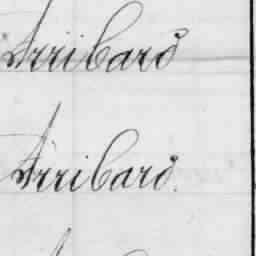 Arribard
Arribard.